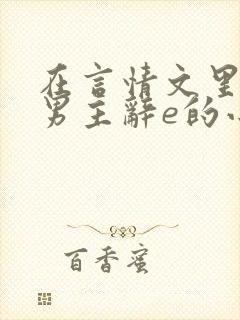 在言情文里
男主辞e的
百香蜜